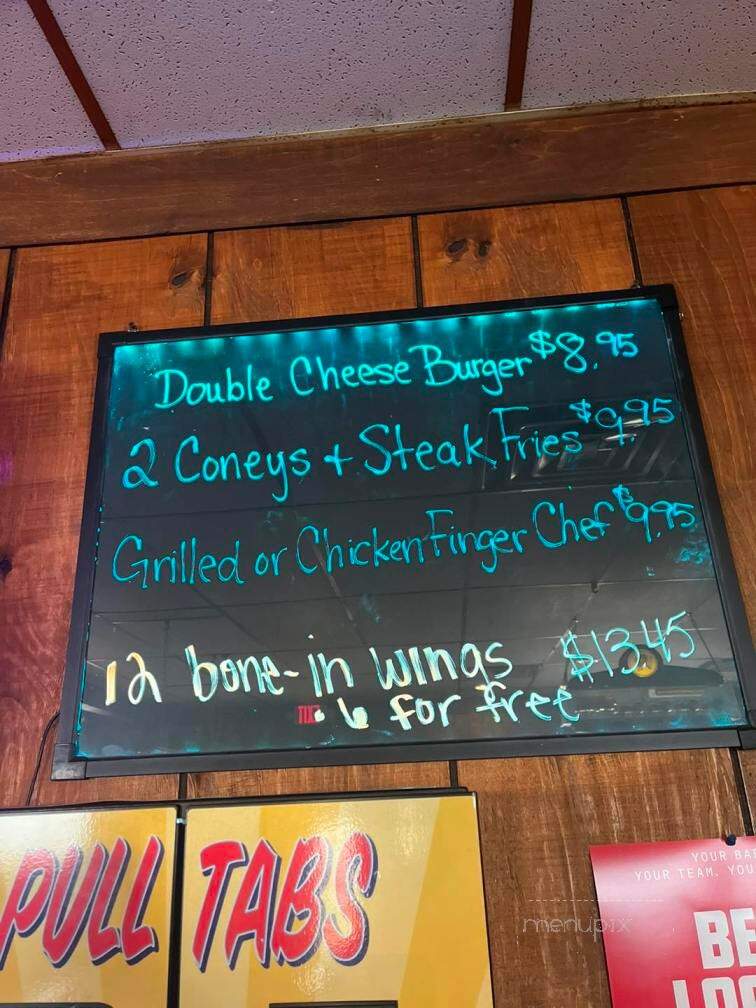 Double Cheese Burger $8.95
2 Coneys + Steak Fries $9.95
Grilled or Chicken Finger Chef $9.95
12 bone-in wings $13.45
6 for free
PULL TABS
YOUR BA
YOUR TEAM. YOU
BE
LOC
menupix